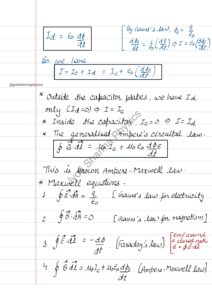 I_d = ε₀ dφ/dt
[By Gauss's law, φ_E = q/ε₀
dφ_E/dt = 1/ε₀ (dq/dt) ⇒ I = ε₀(dφ_E/dt)]
So we have
I = I_c + I_d = I_c + ε₀(dφ_E/dt)
* Outside the capacitor plates, we have I_d
only (I_d=0) ⇒ I = I_c
* Inside the capacitor I_c = 0 ⇒ I = I_d
* The generalised Ampere's circuital law.
∮ B⃗·dl⃗ = μ₀I_c + μ₀ε₀ dφ_E/dt
This is known Ampere-Maxwell law.
* Maxwell equations -
1. ∮ E⃗·dA⃗ = q/ε₀ [Gauss's law for electricity
2. ∮ B⃗·dA⃗ = 0 [Gauss's law for magnetism]
3. ∮ E⃗·dl⃗ = -dφ/dt (Faraday's law) [Emf around a closed path
e = ∮E⃗·dl⃗
4. ∮ B⃗·dl⃗ = μ₀I_c + μ₀ε₀ dφ_E/dt [Ampere-Maxwell law]